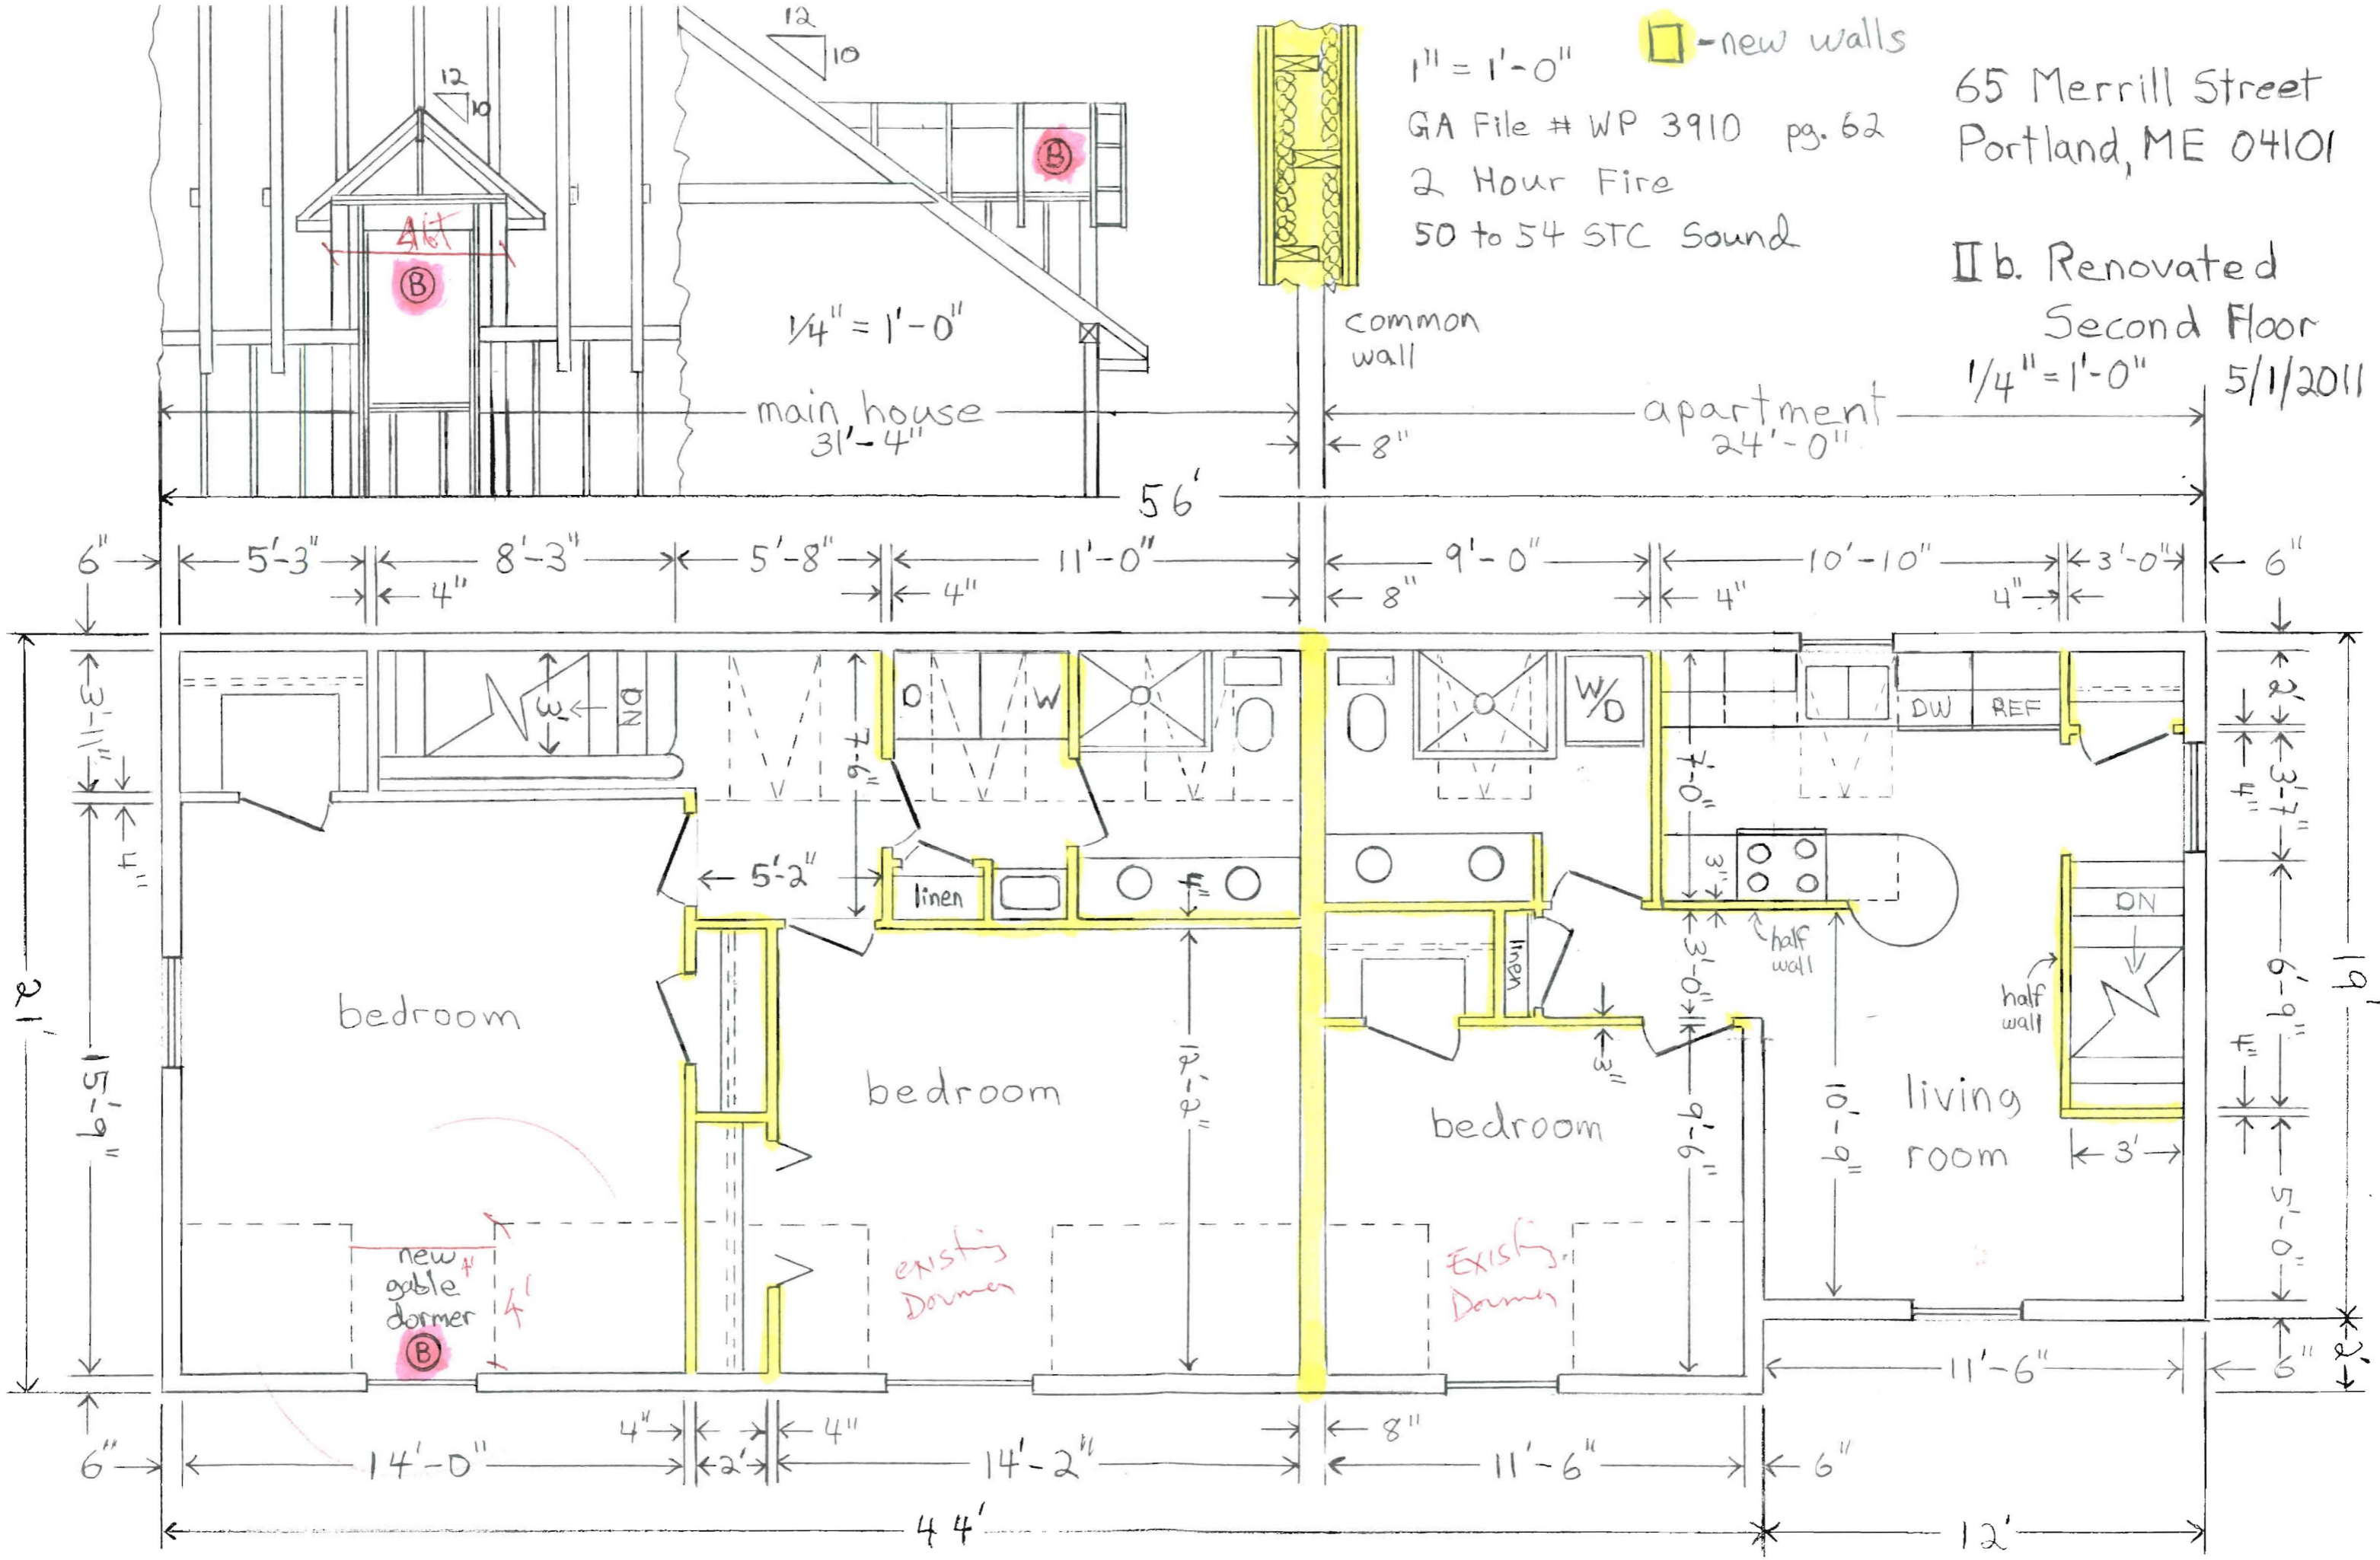 12
10
12
10
4 ft
B
B
1/4" = 1'-0"
1" = 1'-0"
GA File # WP 3910 pg. 62
2 Hour Fire
50 to 54 STC Sound
-new walls
65 Merrill Street
Portland, ME 04101
IIb. Renovated
Second Floor
1/4" = 1'-0" 5/1/2011
common
wall
main house
31'-4"
8"
apartment
24'-0"
56'
6" 5'-3" 8'-3" 5'-8" 11'-0" 9'-0" 10'-10" 3'-0" 6"
4" 4" 8" 4" 4"
21'
3'-11"
4"
15'-9"
3'
DN
7'-6"
D W
W/D
7'-0"
DW REF
2'
4"
3'-7"
19'
5'-2"
linen
4"
linen
3"
half
wall
3'-0"
DN
half
wall
6'-9"
4"
bedroom
bedroom
12'-2"
bedroom
3"
9'-6"
10'-9"
living
room
3'
5'-0"
new
gable
dormer
4'
4'
B
existing
Dormer
Existing
Dormer
11'-6" 6"
2'
6" 14'-0" 4" 2' 4" 14'-2" 8" 11'-6" 6"
44' 12'